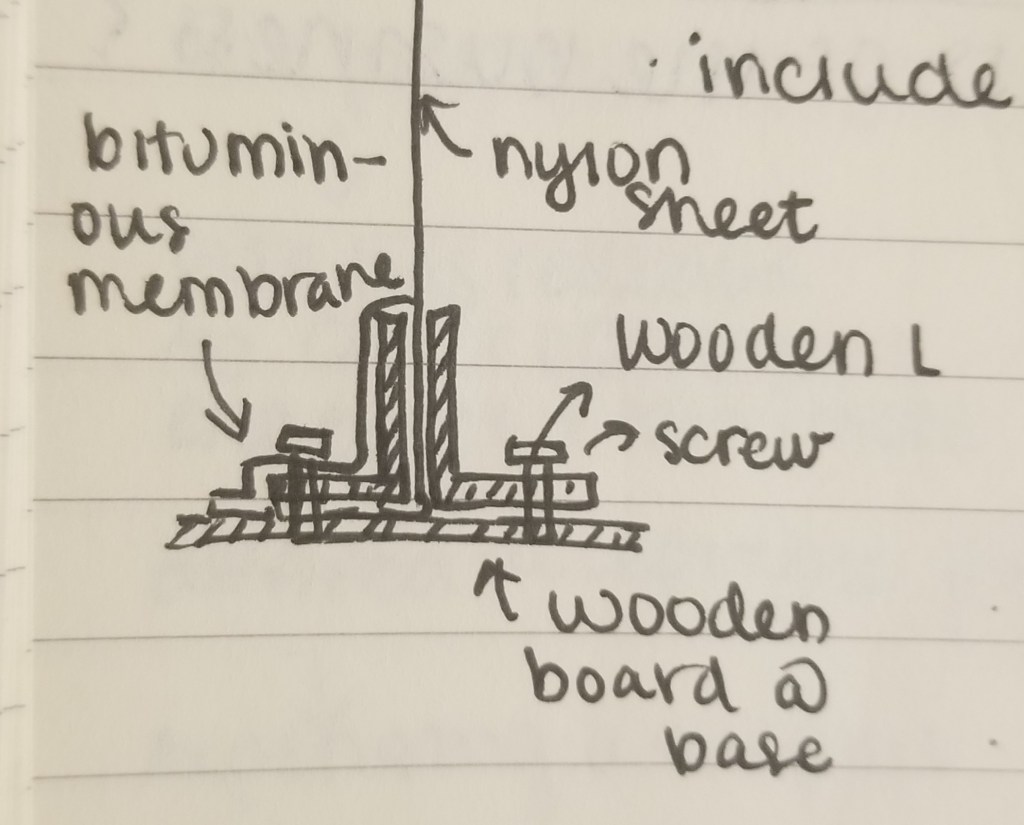 · include
bitumin-
ous
membrane
nylon
sheet
wooden L
screw
wooden
board @
base